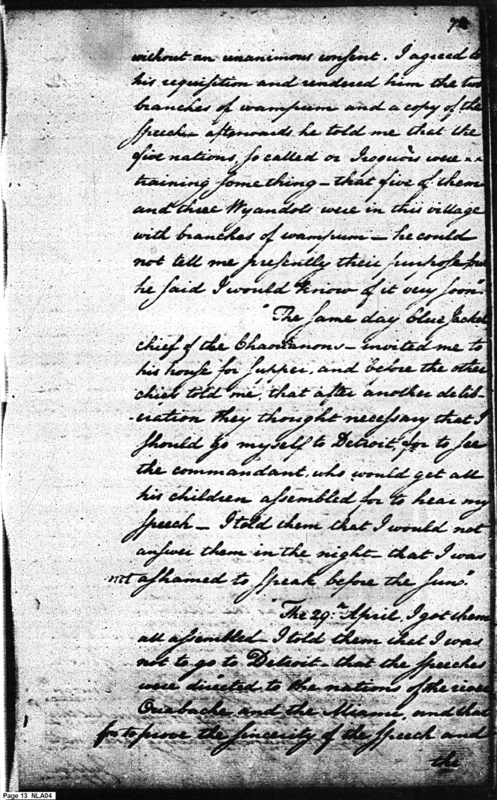 without an unanimous consent. I agreed to
his requisition and rendered him the two
branches of wampum and a copy of the
Speech – afterwards he told me that the
five nations, so called or Iroquois were
training something – that five of them
and three Wyandots were in this village
with branches of wampum – he could
not tell me presently their purpose, but
he said I would know of it very soon"
"The same day Blue Jacket
chief of the Chaouanons – invited me to
his house for supper, and before the other
chiefs told me, that after another delib-
eration they thought necessary that I
should go myself to Detroit, for to see
the commandant, who would get all
his children assembled for to hear my
speech – I told them that I would not
answer them in the night – that I was
not ashamed to speak before the sun."
"The 29.th April I got them
all assembled – I told them that I was
not to go to Detroit – that the speeches
were directed to the nations of the river
Ouabache and the Miami, and that
for to prove the sincerity of the speech and
the
Page 13 NLA04